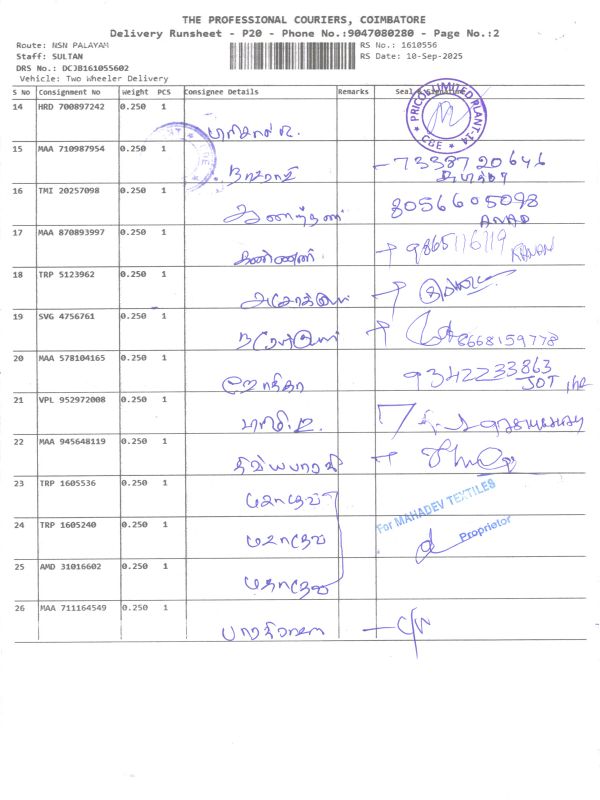 THE PROFESSIONAL COURIERS, COIMBATORE
Delivery Runsheet - P20 - Phone No.:9047080280 - Page No.:2
Route: NSN PALAYAM RS No.: 1610556
Staff: SULTAN RS Date: 10-Sep-2025
DRS No.: DCJB161055602
Vehicle: Two Wheeler Delivery
S No Consignment No Weight PCS Consignee Details Remarks Seal &
14 HRD 700897242 0.250 1
PRICOL LIMITED PLANT-14
CBE
15 MAA 710987954 0.250 1 7338720646
16 TMI 20257098 0.250 1 8056605098
ANAD
17 MAA 870893997 0.250 1 9865116119 KANAN
கண்ணன்
18 TRP 5123962 0.250 1
19 SVG 4756761 0.250 1 8668159778
20 MAA 578104165 0.250 1 9342233863
21 VPL 952972008 0.250 1
22 MAA 945648119 0.250 1
திவ்யபாரதி
23 TRP 1605536 0.250 1
மகாதேவ்
For MAHADEV TEXTILES
24 TRP 1605240 0.250 1 Proprietor
மகாதேவ்
25 AMD 31016602 0.250 1
மகாதேவ்
26 MAA 711164549 0.250 1